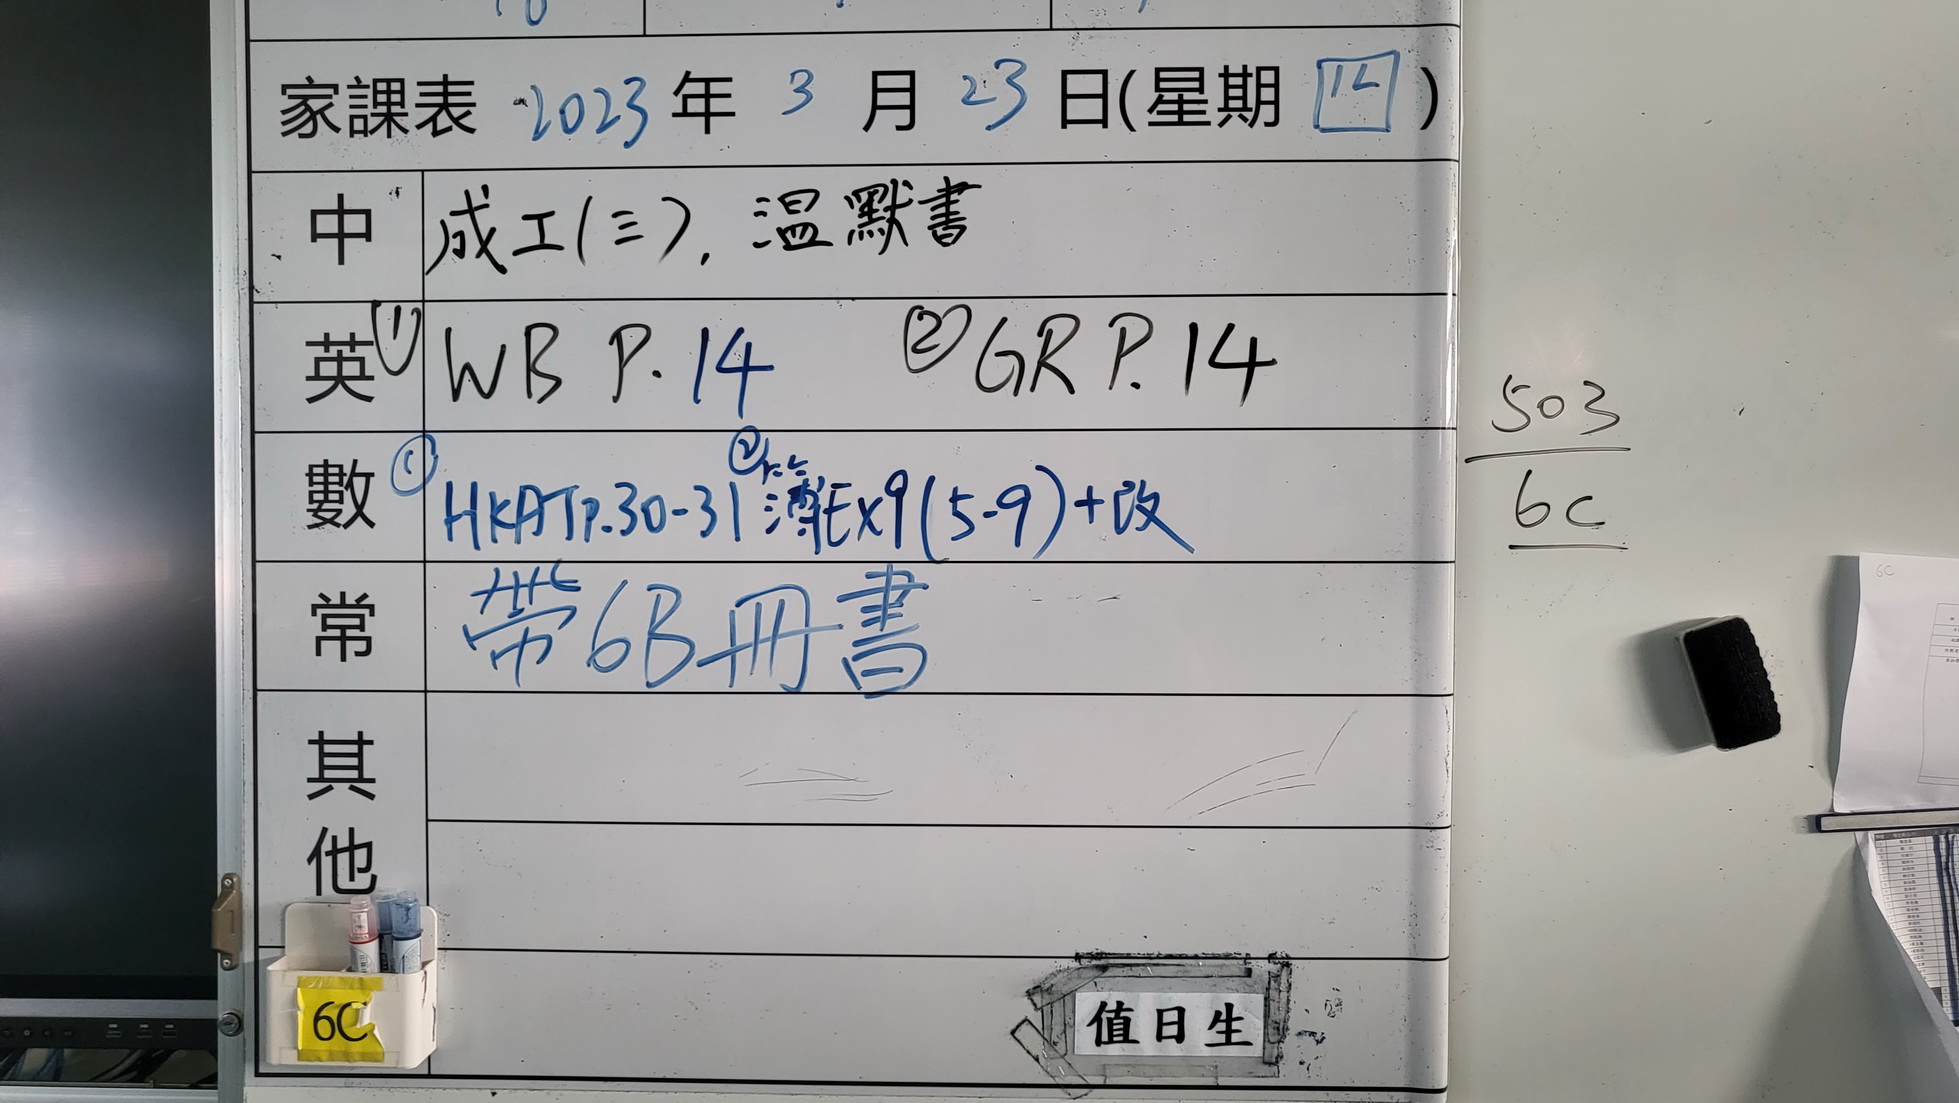 家課表 2023年 3月 23日(星期四)
中 成工(三), 溫默書
英 ① WB P.14 ② GR P.14
數 ① HKAT P.30-31 ② 簿Ex9(5-9)+改
常 帶6B冊書
其他
6C
值日生
503
6C
6C